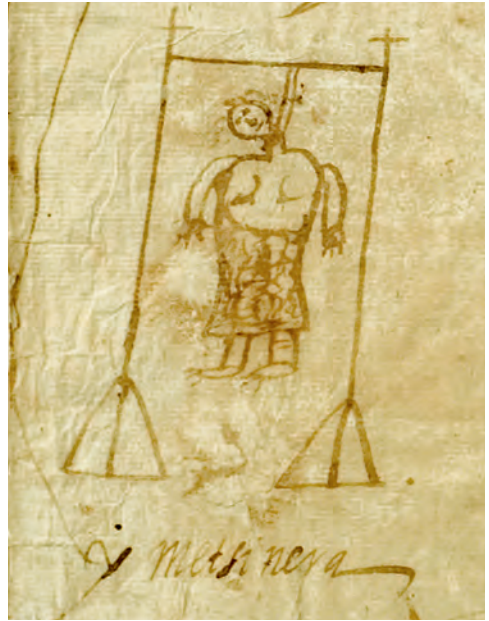 y metsinera